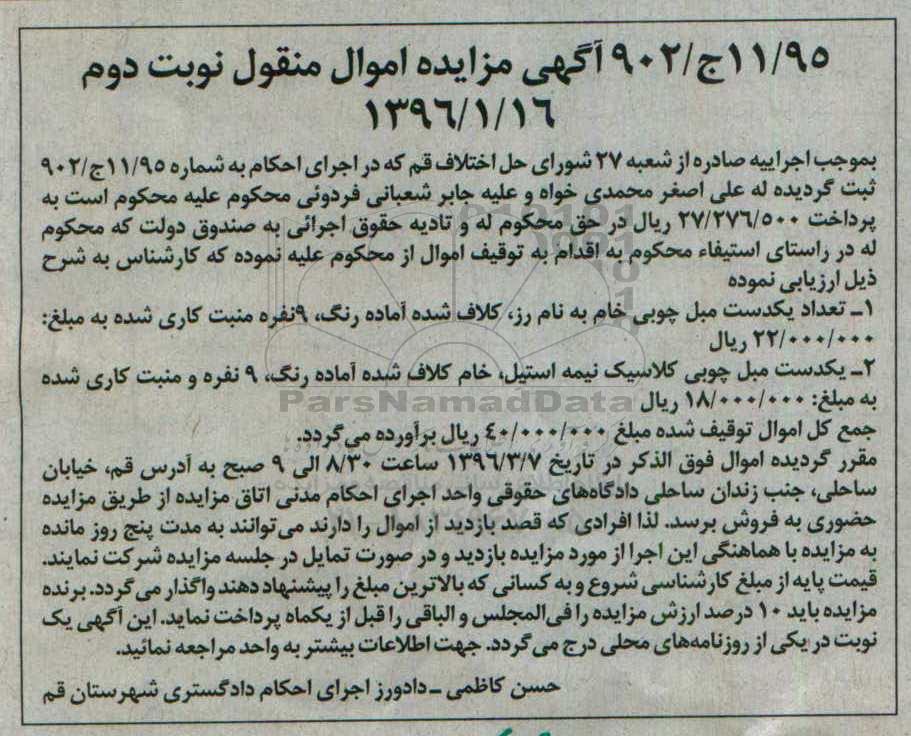 ۹۰۲/ج۱۱/۹۵ آگهی مزایده اموال منقول نوبت دوم
۱۳۹٦/۱/۱٦
بموجب اجراییه صادره از شعبه ۲۷ شورای حل اختلاف قم که در اجرای احکام به شماره ۹۰۲/ج۱۱/۹۵
ثبت گردیده له علی اصغر محمدی خواه و علیه جابر شعبانی فردوئی محکوم علیه محکوم است به
پرداخت ۲۷/۲۷٦/۵۰۰ ریال در حق محکوم له و تادیه حقوق اجرائی به صندوق دولت که محکوم
له در راستای استیفاء محکوم به اقدام به توقیف اموال از محکوم علیه نموده که کارشناس به شرح
ذیل ارزیابی نموده
۱ـ تعداد یکدست مبل چوبی خام به نام رز، کلاف شده آماده رنگ، ۹نفره منبت کاری شده به مبلغ:
۲۲/۰۰۰/۰۰۰ ریال
۲ـ یکدست مبل چوبی کلاسیک نیمه استیل، خام کلاف شده آماده رنگ، ۹ نفره و منبت کاری شده
به مبلغ: ۱۸/۰۰۰/۰۰۰ ریال
ParsNamadData
جمع کل اموال توقیف شده مبلغ ٤۰/۰۰۰/۰۰۰ ریال برآورده می‌گردد.
مقرر گردیده اموال فوق الذکر در تاریخ ۱۳۹٦/۳/۷ ساعت ۸/۳۰ الی ۹ صبح به آدرس قم، خیابان
ساحلی، جنب زندان ساحلی دادگاه‌های حقوقی واحد اجرای احکام مدنی اتاق مزایده از طریق مزایده
حضوری به فروش برسد. لذا افرادی که قصد بازدید از اموال را دارند می‌توانند به مدت پنج روز مانده
به مزایده با هماهنگی این اجرا از مورد مزایده بازدید و در صورت تمایل در جلسه مزایده شرکت نمایند.
قیمت پایه از مبلغ کارشناسی شروع و به کسانی که بالاترین مبلغ را پیشنهاد دهند واگذار می گردد. برنده
مزایده باید ۱۰ درصد ارزش مزایده را فی‌المجلس و الباقی را قبل از یکماه پرداخت نماید. این آگهی یک
نوبت در یکی از روزنامه‌های محلی درج می گردد. جهت اطلاعات بیشتر به واحد مراجعه نمائید.
حسن کاظمی ـ دادورز اجرای احکام دادگستری شهرستان قم